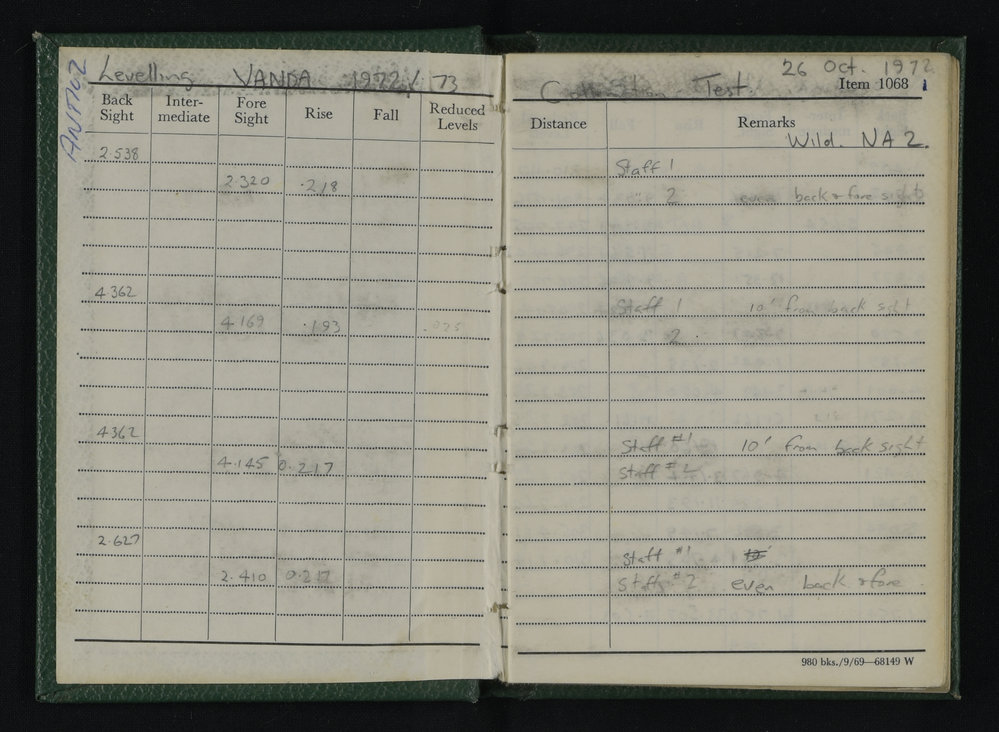 Levelling VANDA 1972/73
Back Sight Inter-mediate Fore Sight Rise Fall Reduced Levels
2.538
2.320 .218
4.362
4.169 .193 .025
4.362
4.145 0.217
2.627
2.410 0.217
26 Oct. 1972
Test. Item 1068 1
Distance Remarks
Wild. NA 2.
Staff 1
2 even back & fore sight
Staff 1 10' from back sight
2
Staff #1 10' from back sight
Staff #2
Staff #1
Staff #2 even back & fore
980 bks./9/69—68149 W